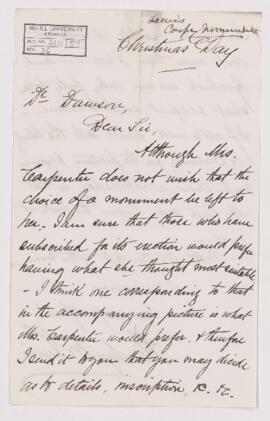 McGILL UNIVERSITY
ARCHIVES
ACC. NO.
REF.
Lewis
Carp. Monument
Christmas Day
Dr Dawson,
Dear Sir,
Although Mrs.
Carpenter does not wish that the
choice of a monument be left to
her. I am sure that those who have
subscribed for its erection would prefer
having what she thought most suitable
- I think one corresponding to that
in the accompanying picture is what
Mrs. Carpenter would prefer, & therefore
I send it to you that you may decide
as to details, inscription, &c. &c.